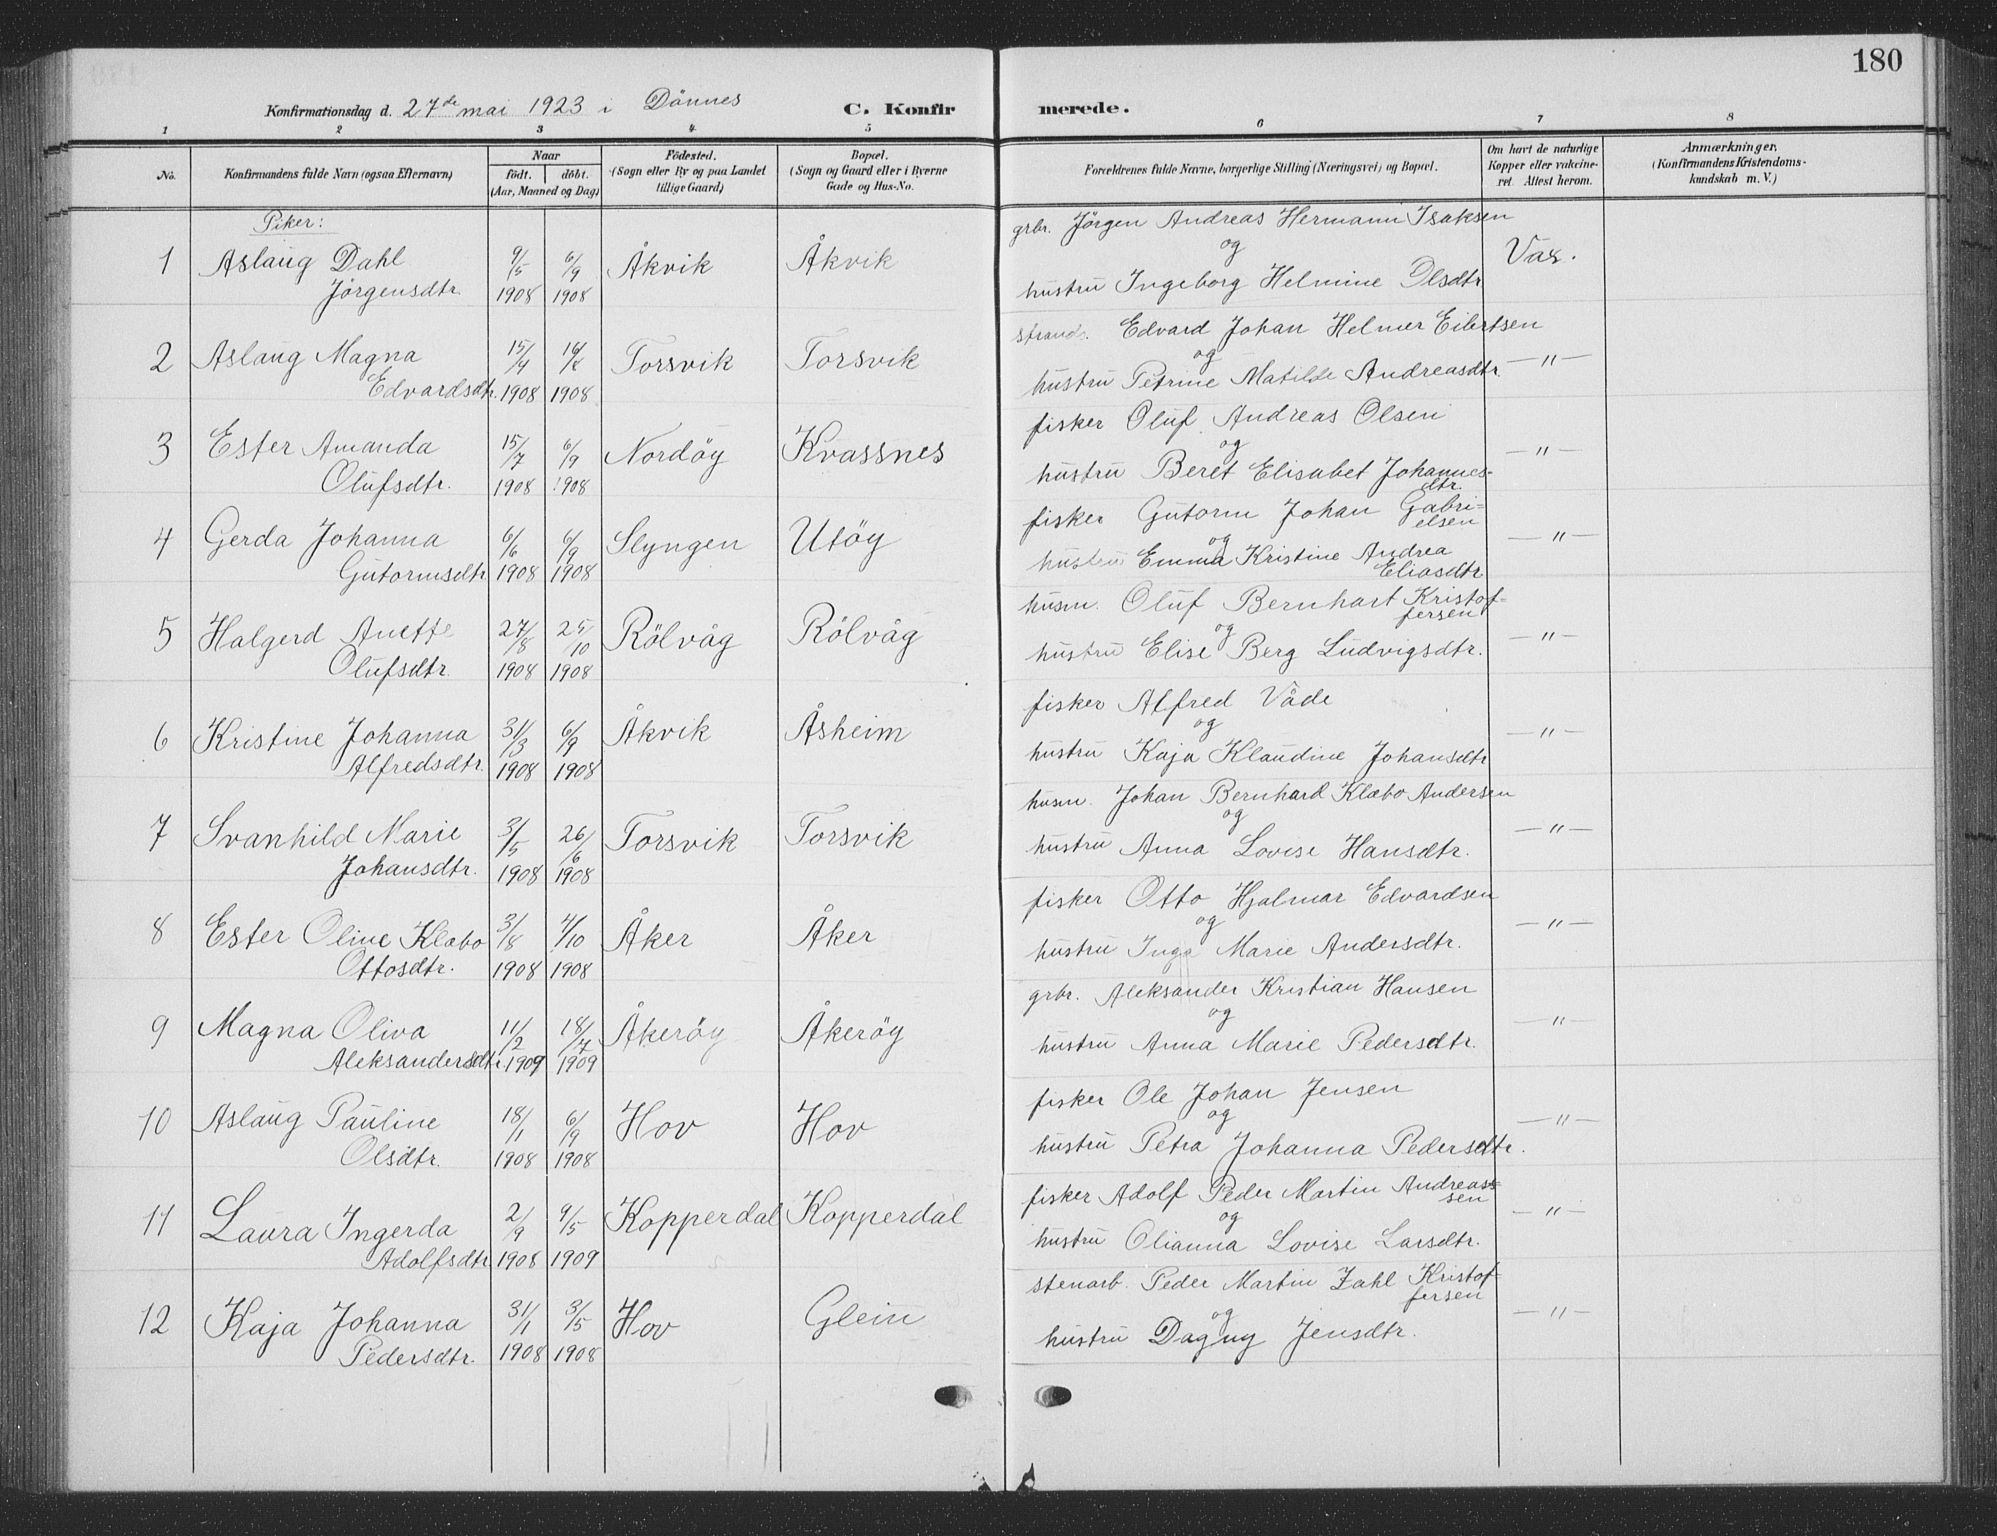 180
Konfirmationsdag d. 27de mai 1923 i Dönnes C. Konfirmerede.
1 2 3 4 5 6 7 8
No. Konfirmandens fulde Navn (ogsaa Efternavn) Naar födt. döbt. (Aar, Maaned og Dag) Födested. (Sogn eller By og paa Landet tillige Gaard) Bopæl. (Sogn og Gaard eller i Byerne Gade og Hus-No. Forældrenes fulde Navne, borgerlige Stilling (Næringsvei) og Bopæl. Om havt de naturlige Kopper eller vakcineret. Attest herom. Anmærkninger. (Konfirmandens Kristendomskundskab m. V.)
Piker:
1 Aslaug Dahl Jörgensdtr. 9/5 1908 6/9 1908 Åkvik Åkvik grbr. Jörgen Andreas Hermann Isaksen og hustru Ingeborg Helmine Olsdtr Vac.
2 Aslaug Magna Edvardsdtr. 15/4 1908 1908 Torsvik Torsvik Edvard Johan Helmer Eilertsen og hustru Petrine Matilde Andreasdtr. —"—
3 Ester Amanda Olufsdtr. 15/7 1908 6/9 1908 Nordöy Kvassnes fisker Oluf Andreas Olsen og hustru Beret Elisabet Johannesdtr. —"—
4 Gerda Johanna Gutormsdtr 6/6 1908 6/9 1908 Slyngen Utöy fisker Gutorm Johan Gabrielsen og hustru Emma Kristine Andrea Eliasdtr —"—
5 Halgerd Anette Olufsdtr. 27/8 1908 25/10 1908 Rölvåg Rölvåg husm. Oluf Bernhart Kristoffersen og hustru Elise Berg Ludvigsdtr. —"—
6 Kristine Johanna Alfredsdtr. 31/3 1908 6/9 1908 Åkvik Åsheim fisker Alfred Våde og hustru Kaja Klaudine Johansdtr —"—
7 Svanhild Marie Johansdtr. 3/5 1908 26/6 1908 Torsvik Torsvik husm. Johan Bernhard Klæbo Andersen og hustru Anna Lovise Hansdtr. —"—
8 Ester Oline Klæbo Ottosdtr. 3/8 1908 4/10 1908 Åker Åker fisker Otto Hjalmar Edvardsen og hustru Inga Marie Andersdtr. —"—
9 Magna Oliva Aleksandersdtr. 11/2 1909 18/7 1909 Åkeröy Åkeröy grbr. Aleksander Kristian Hansen og hustru Anna Marie Pedersdtr. —"—
10 Aslaug Pauline Olsdtr. 18/1 1908 6/9 1908 Hov Hov fisker Ole Johan Jensen og hustru Petra Johanna Pedersdtr. —"—
11 Laura Ingerda Adolfsdtr 2/9 1908 9/5 1909 Kopperdal Kopperdal fisker Adolf Peder Martin Andreassen og hustru Olianna Lovise Larsdtr. —"—
12 Kaja Johanna Pedersdtr. 31/1 1908 3/5 1908 Hov Glein stenarb. Peder Martin Zahl Kristoffersen og hustru Dagny Jensdtr. —"—